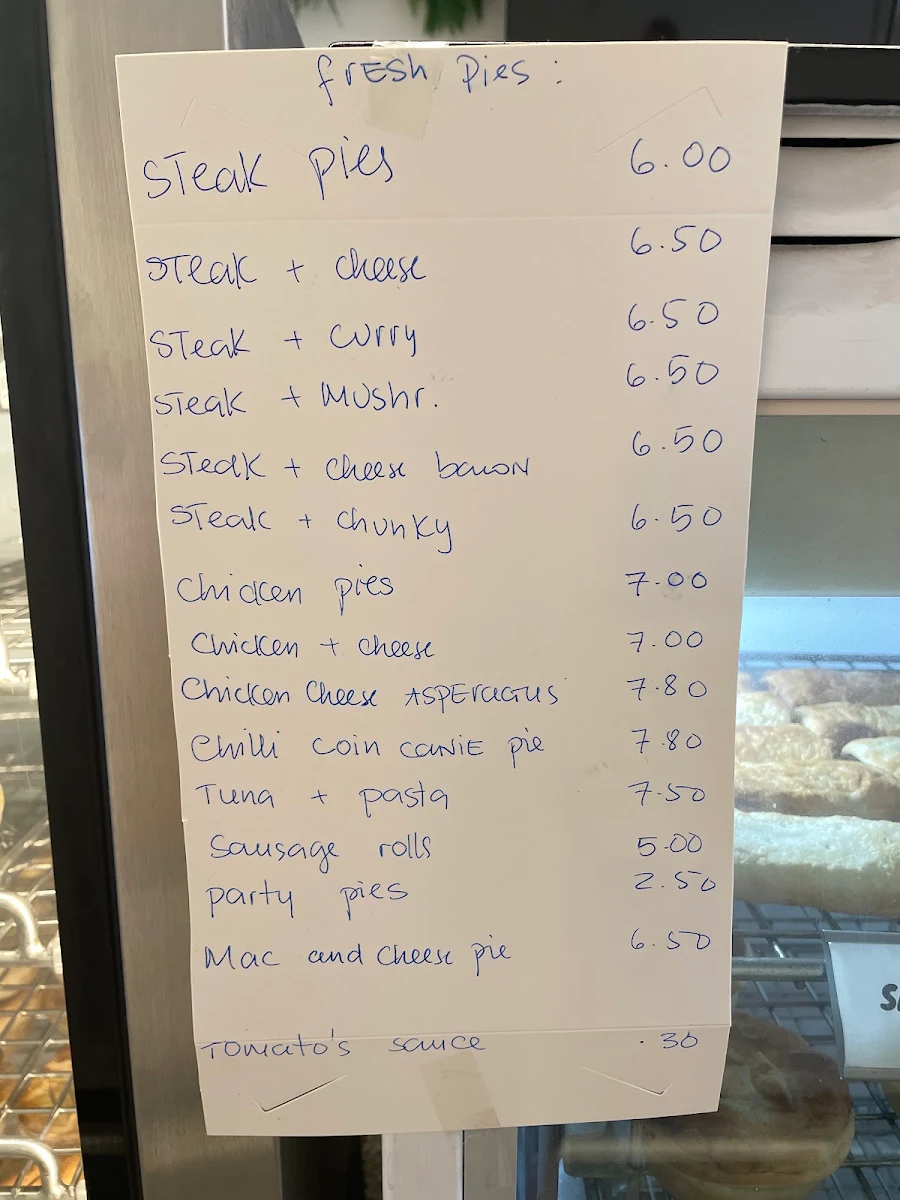 fresh pies :
Steak pies 6.00
Steak + cheese 6.50
Steak + curry 6.50
Steak + Mushr. 6.50
Steak + cheese bacon 6.50
Steak + chunky 6.50
Chicken pies 7.00
Chicken + cheese 7.00
Chicken Cheese ASPERAGUS 7.80
Chilli coin canie pie 7.80
Tuna + pasta 7.50
Sausage rolls 5.00
party pies 2.50
Mac and cheese pie 6.50
Tomato's sauce .30